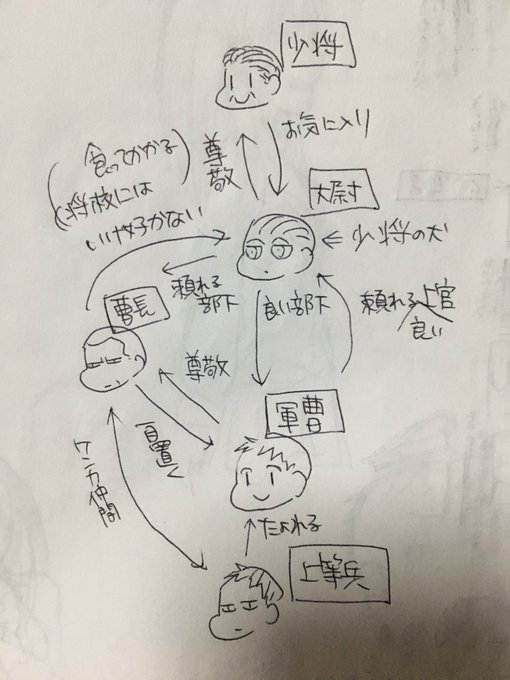 少将
お気に入り
尊敬
(食ってかかる)
(将校には
いけ好かない
大尉
少将の犬
頼れる
部下
良い部下
頼れる上官
良い
曹長
尊敬
軍曹
一目置く
ケンカ仲間
たよれる
上等兵